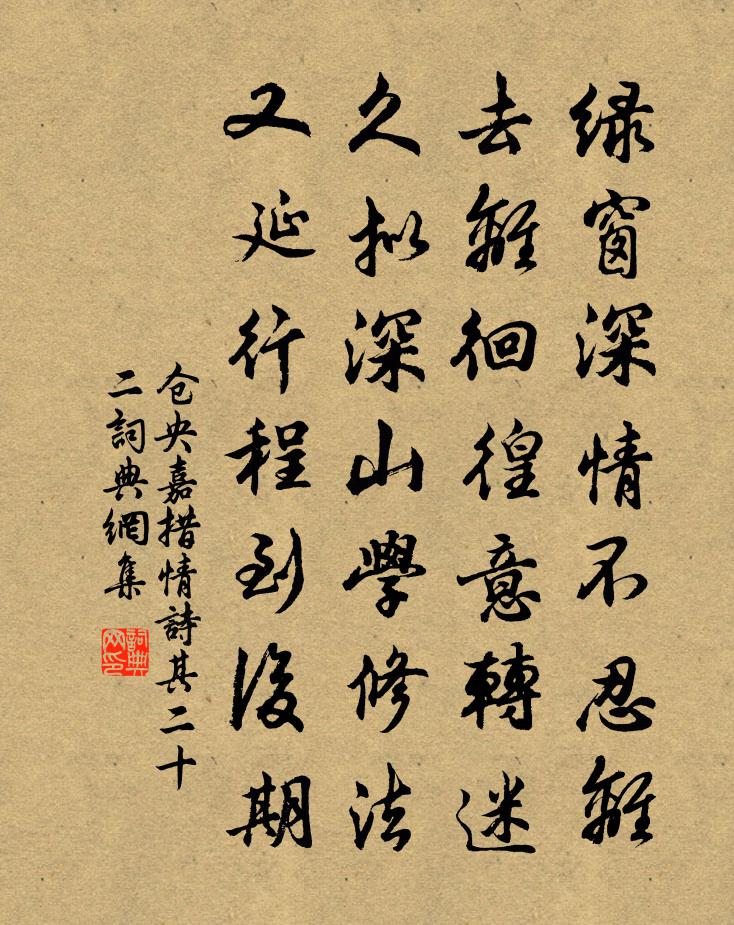 緑窗深情不忍離
去離徊徨意轉迷
久拟深山學修法
又延行程到後期
仓央嘉措情詩其二十
二詞典網集
詞典
网印